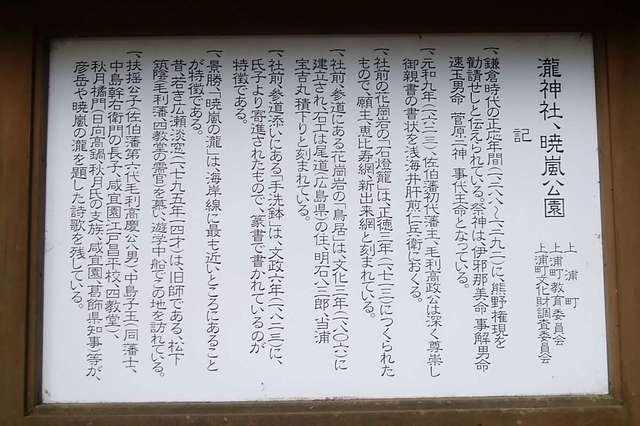 瀧神社、暁嵐公園
記
上浦町
上浦町教育委員会
上浦町文化財調査委員会
一、鎌倉時代の正応年間(一二八八〜一二九二)に、熊野権現を
勧請せしと伝えられている。祭神は、伊邪那美命 事解男命
速玉男命 菅原二神 事代主命となっている。
一、元和九年(一六二三)、佐伯藩初代藩主、毛利高政公は深く尊崇し
御親書の書状を浅海井肝煎仁兵衛におくる。
一、社前の花崗岩の「石燈籠」は、正徳三年(一七一三)につくられた
もので、願主、恵比寿網、新出来網と刻まれている。
一、社前、参道にある花崗岩の「鳥居」は、文化三年(一八〇六)に
建立され、石工は尾道(広島県)の住、明石八三郎、当浦
宝吉丸積下りと刻まれている。
一、社前、参道添いにある「手洗鉢」は、文政六年(一八二三)に、
氏子より寄進されたもので、篆書で書かれているのが
特徴である。
一、景勝、「暁嵐の瀧」は、海岸線に最も近いところにあること
が特徴である。
昔、若き広瀬淡窓(一七九五年(一四才)は、旧師である、松下
筑陰(毛利藩、四教堂の儒官)を慕い、遊学中船でこの地を訪れている。
一、扶揺公子(佐伯藩第六代毛利高慶公八男)、中島子玉(同藩士、
中島幹右衛門の長子、咸宜園、江戸昌平校、四教堂)、
秋月橘門(日向高鍋、秋月氏の支族、咸宜園、葛飾県知事)等が、
彦岳や暁嵐の瀧を題した詩歌を残している。